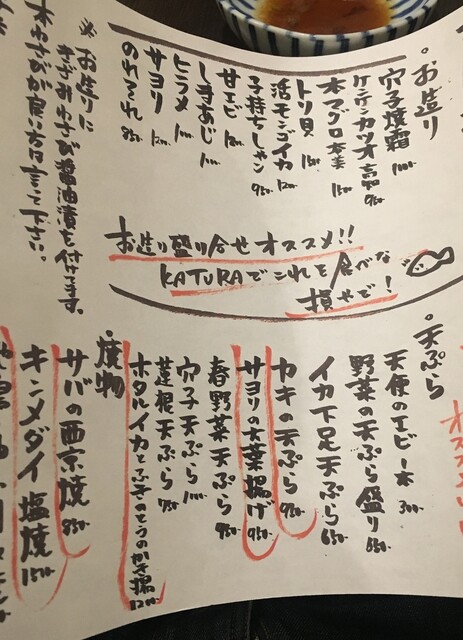 ・お造り
穴子焼霜 1000-
ケンケンカツオ 高知 950-
本マグロ 奄美 150-
トリ貝
活モンゴイカ 1200-
子持ちしャン 950-
甘エビ
しまあじ
ヒラメ
サヨリ 1200-
のれそれ 850-
※お造りに
きざみわさび醤油漬を付けてます。
本わさびが良い方は言って下さい。
お造り盛り合せオススメ!!
KATURAでこれを食べな
損やで!
・天ぷら
天使のエビ一本 300-
野菜の天ぷら盛り 850-
イカ下足天ぷら 650-
カキの天ぷら 950-
サヨリの大葉揚げ 950-
春野菜天ぷら 950-
穴子天ぷら 1000-
蓮根天ぷら 750-
ホタルイカとふきのとうのかき揚 1200-
・焼物
サバの西京焼 850-
キンメダイ塩焼 1500-